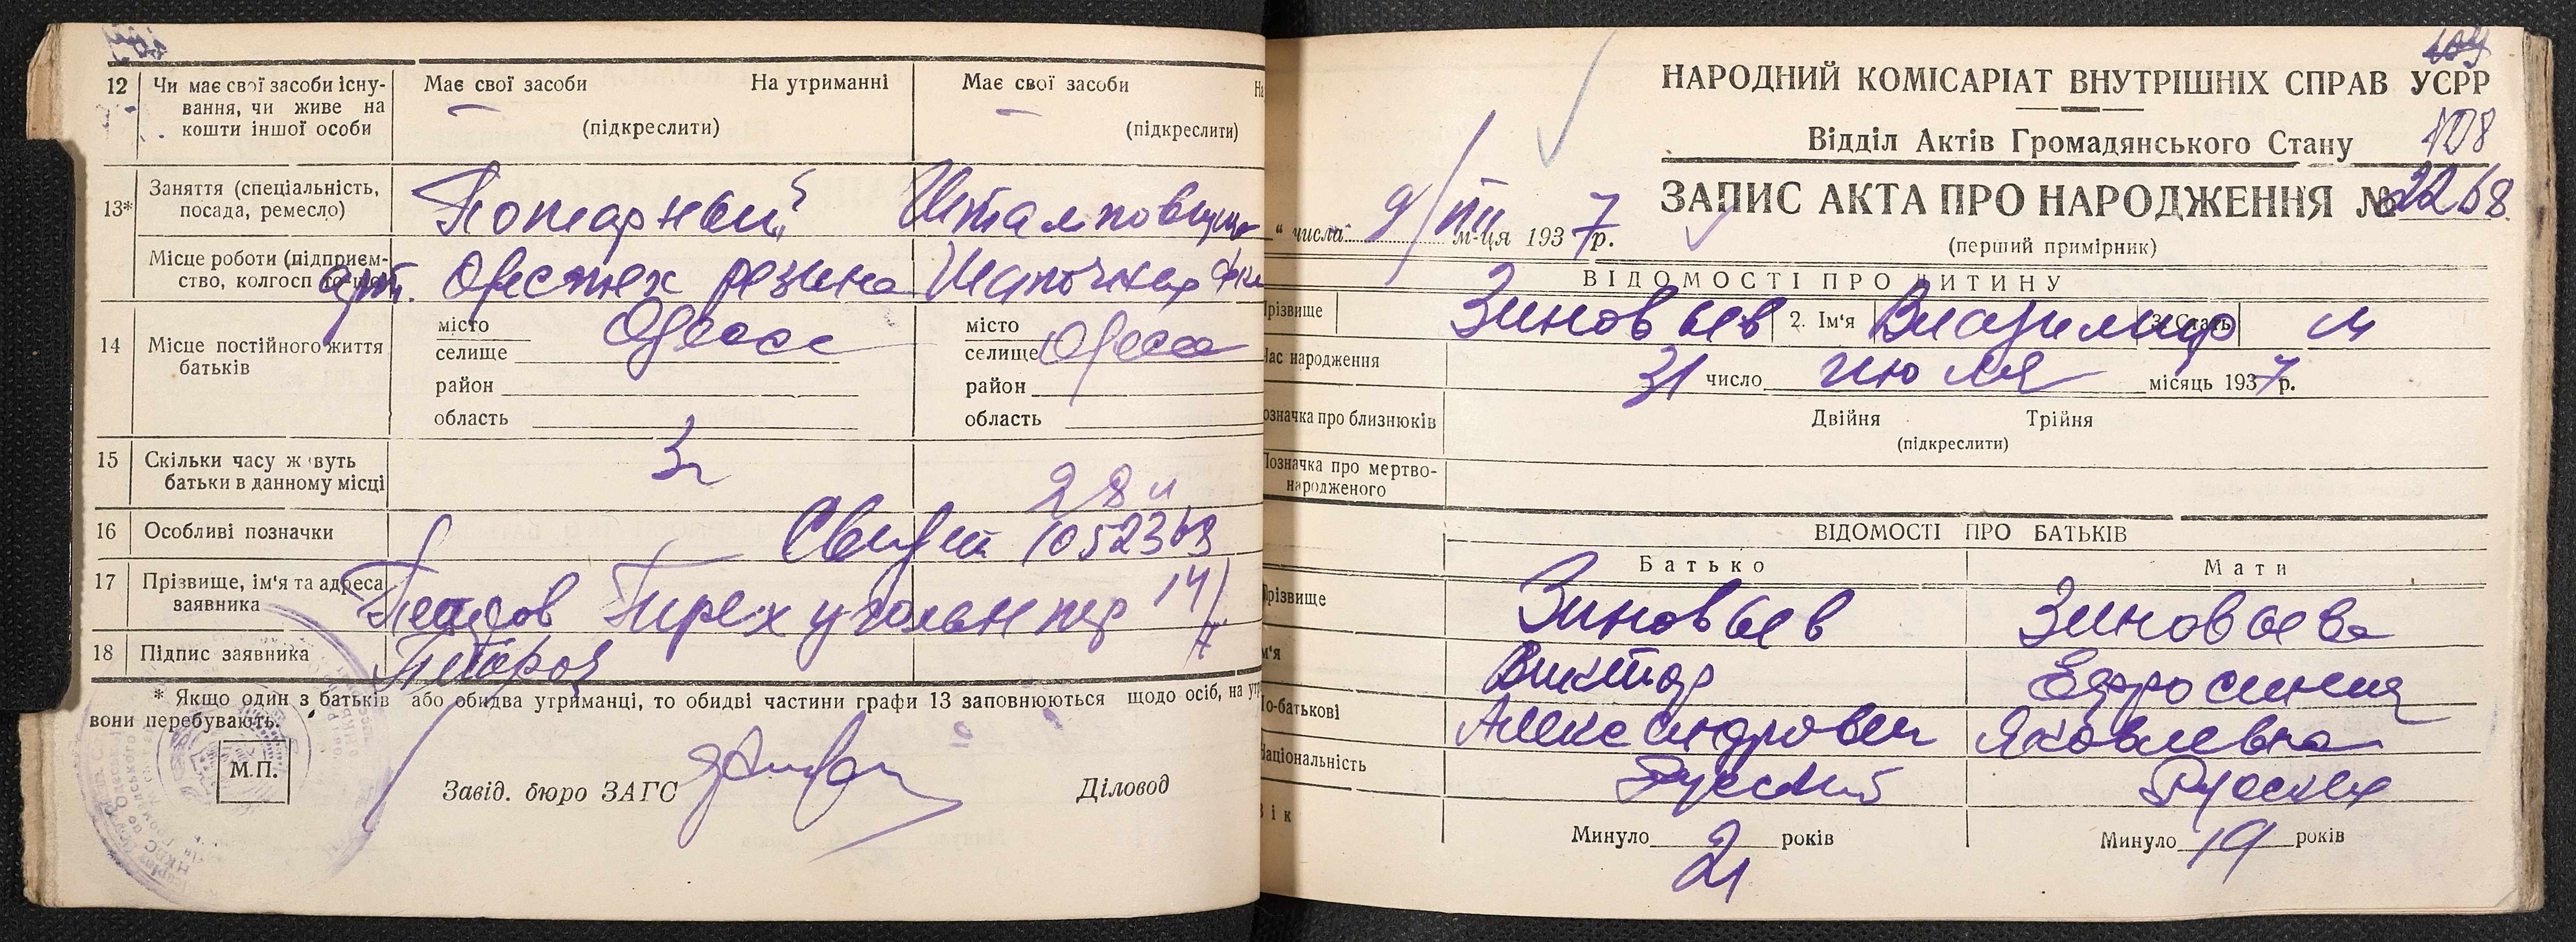 12 Чи має свої засоби існування, чи живе на кошти іншої особи
Має свої засоби На утриманні
(підкреслити)
Має свої засоби На
(підкреслити)
13* Заняття (спеціальність, посада, ремесло)
Пожарный
Штамповщица
Місце роботи (підприєм-
ство, колгосп то-що)
арт. резина
14 Місце постійного життя батьків
місто Одесса
селище
район
область
місто
селище Одесса
район
область
15 Скільки часу живуть
батьки в данному місці
3 г
16 Особливі позначки
1052369
17 Прізвище, ім'я та адреса
заявника
Треугольн пер 14/
18 Підпис заявника
* Якщо один з батьків або обидва утриманці, то обидві частини графи 13 заповнюються щодо осіб, на
вони перебувають.
М.П.
Завід. бюро ЗАГС
Діловод
109
НАРОДНИЙ КОМІСАРІАТ ВНУТРІШНІХ СПРАВ УСРР
Відділ Актів Громадянського Стану 108
ЗАПИС АКТА ПРО НАРОДЖЕННЯ № 2268
" числа 9/VIII м-ця 1937 р.
(перший примірник)
ВІДОМОСТІ ПРО ДИТИНУ
різвище Зиновьев 2. Ім'я Владимир 3. Стать м
Час народження 31 число июля місяць 1937 р.
означка про близнюків Двійня Трійня
(підкреслити)
Позначка про мертво-
народженого
ВІДОМОСТІ ПРО БАТЬКІВ
Батько Мати
Прізвище Зиновьев Зиновьева
м'я Виктор Ефросиния
По-батькові Александрович Яковлевна
Національність Русский Русская
Вік
Минуло 21 років Минуло 19 років